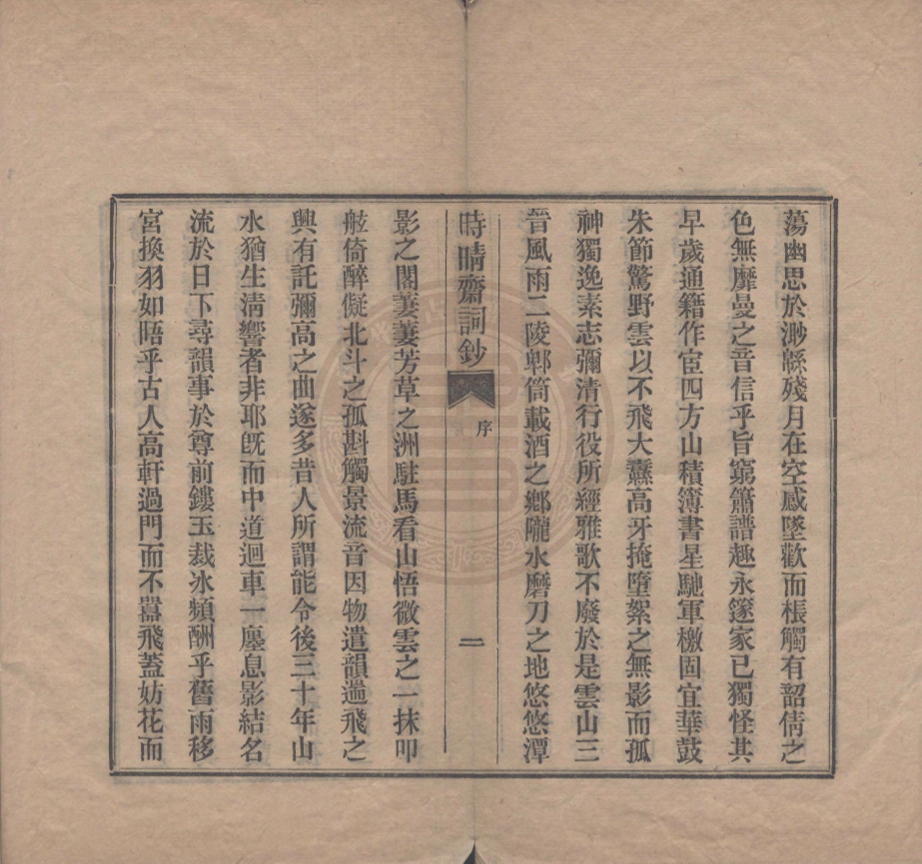 蕩幽思於渺緜殘月在空感墜歡而棖觸有韶倩之
色無靡曼之音信乎旨窮簫譜趣永篴家已獨怪其
早歲通籍作宦四方山積簿書星馳軍檄固宜華鼓
朱節驚野雲以不飛大纛高牙掩墮絮之無影而孤
神獨逸素志彌清行役所經雅歌不廢於是雲山三
晉風雨二陵郫筒載酒之鄉隴水磨刀之地悠悠潭
時晴齋詞鈔
序
二
影之閣萋萋芳草之洲駐馬看山悟微雲之一抹叩
舷倚醉儗北斗之孤斟觸景流音因物遣韻遄飛之
興有託彌高之曲遂多昔人所謂能令後三十年山
水猶生淸響者非耶旣而中道迴車一廛息影結名
流於日下尋韻事於尊前鏤玉裁冰頻酬乎舊雨移
宮換羽如晤乎古人高軒過門而不囂飛蓋妨花而